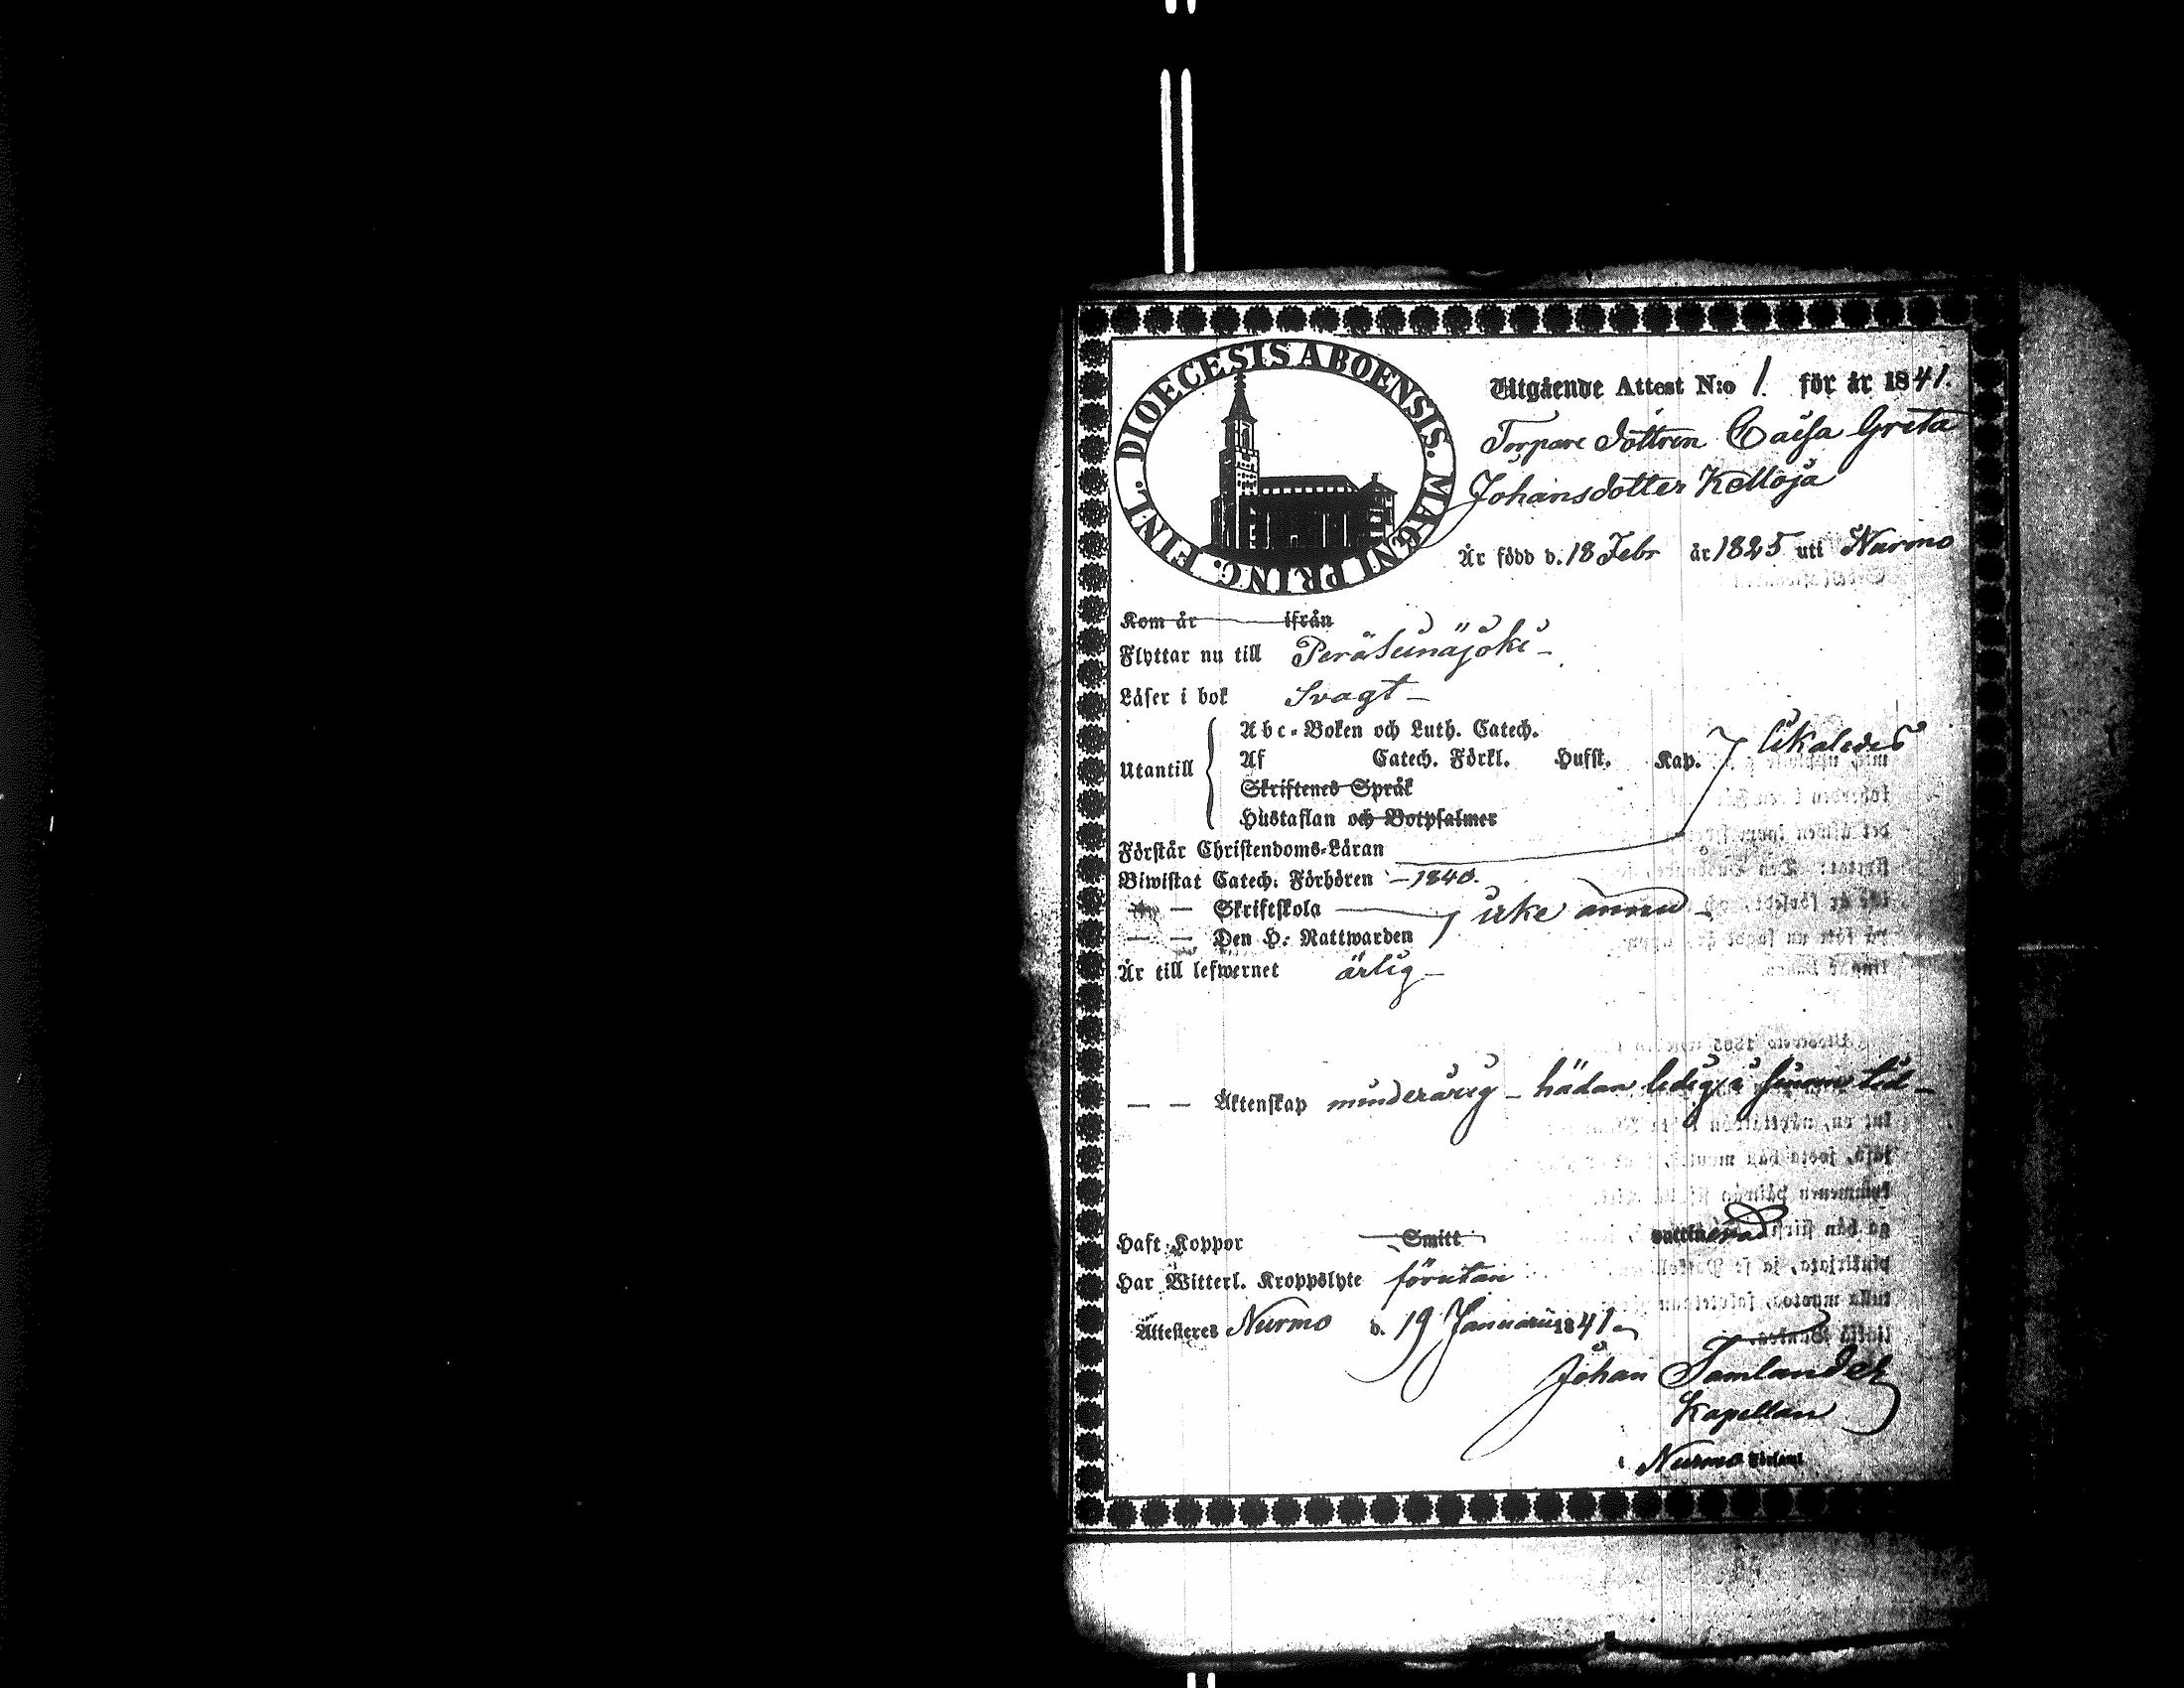 DIOECESIS ABOENSIS. MAGNI PRINC. FINL.
Utgående Attest N:o 1. för år 1841.
Torpare dottren Caisa Greta
Johansdotter Kelloja
Är född d. 18 Febr år 1825 uti Nurmo
Kom år ifrån
Flyttar nu till Peräseinäjoki
Läser i bok Svagt
Abc-Boken och Luth. Catech.
Utantill Af Catech. Förkl. Husst. Kap. likaledes
Skriftenes Språk
Hustaflan och Botpsalmer
Förstår Christendoms-Läran
Biwistat Catech. Förhören 1840.
— — Skriftskola icke ännu
— — Den H. Nattwarden
Är till lefwernet ärlig
— — Äktenskap minderårig hädan ledig i sinom tid
Haft Koppor Smitt vaccinerad
Har Witterl. Kroppslyte förutan
Attesteres Nurmo d. 19 Januarii 1841
Johan
Kapellan
Nurmo Församl.